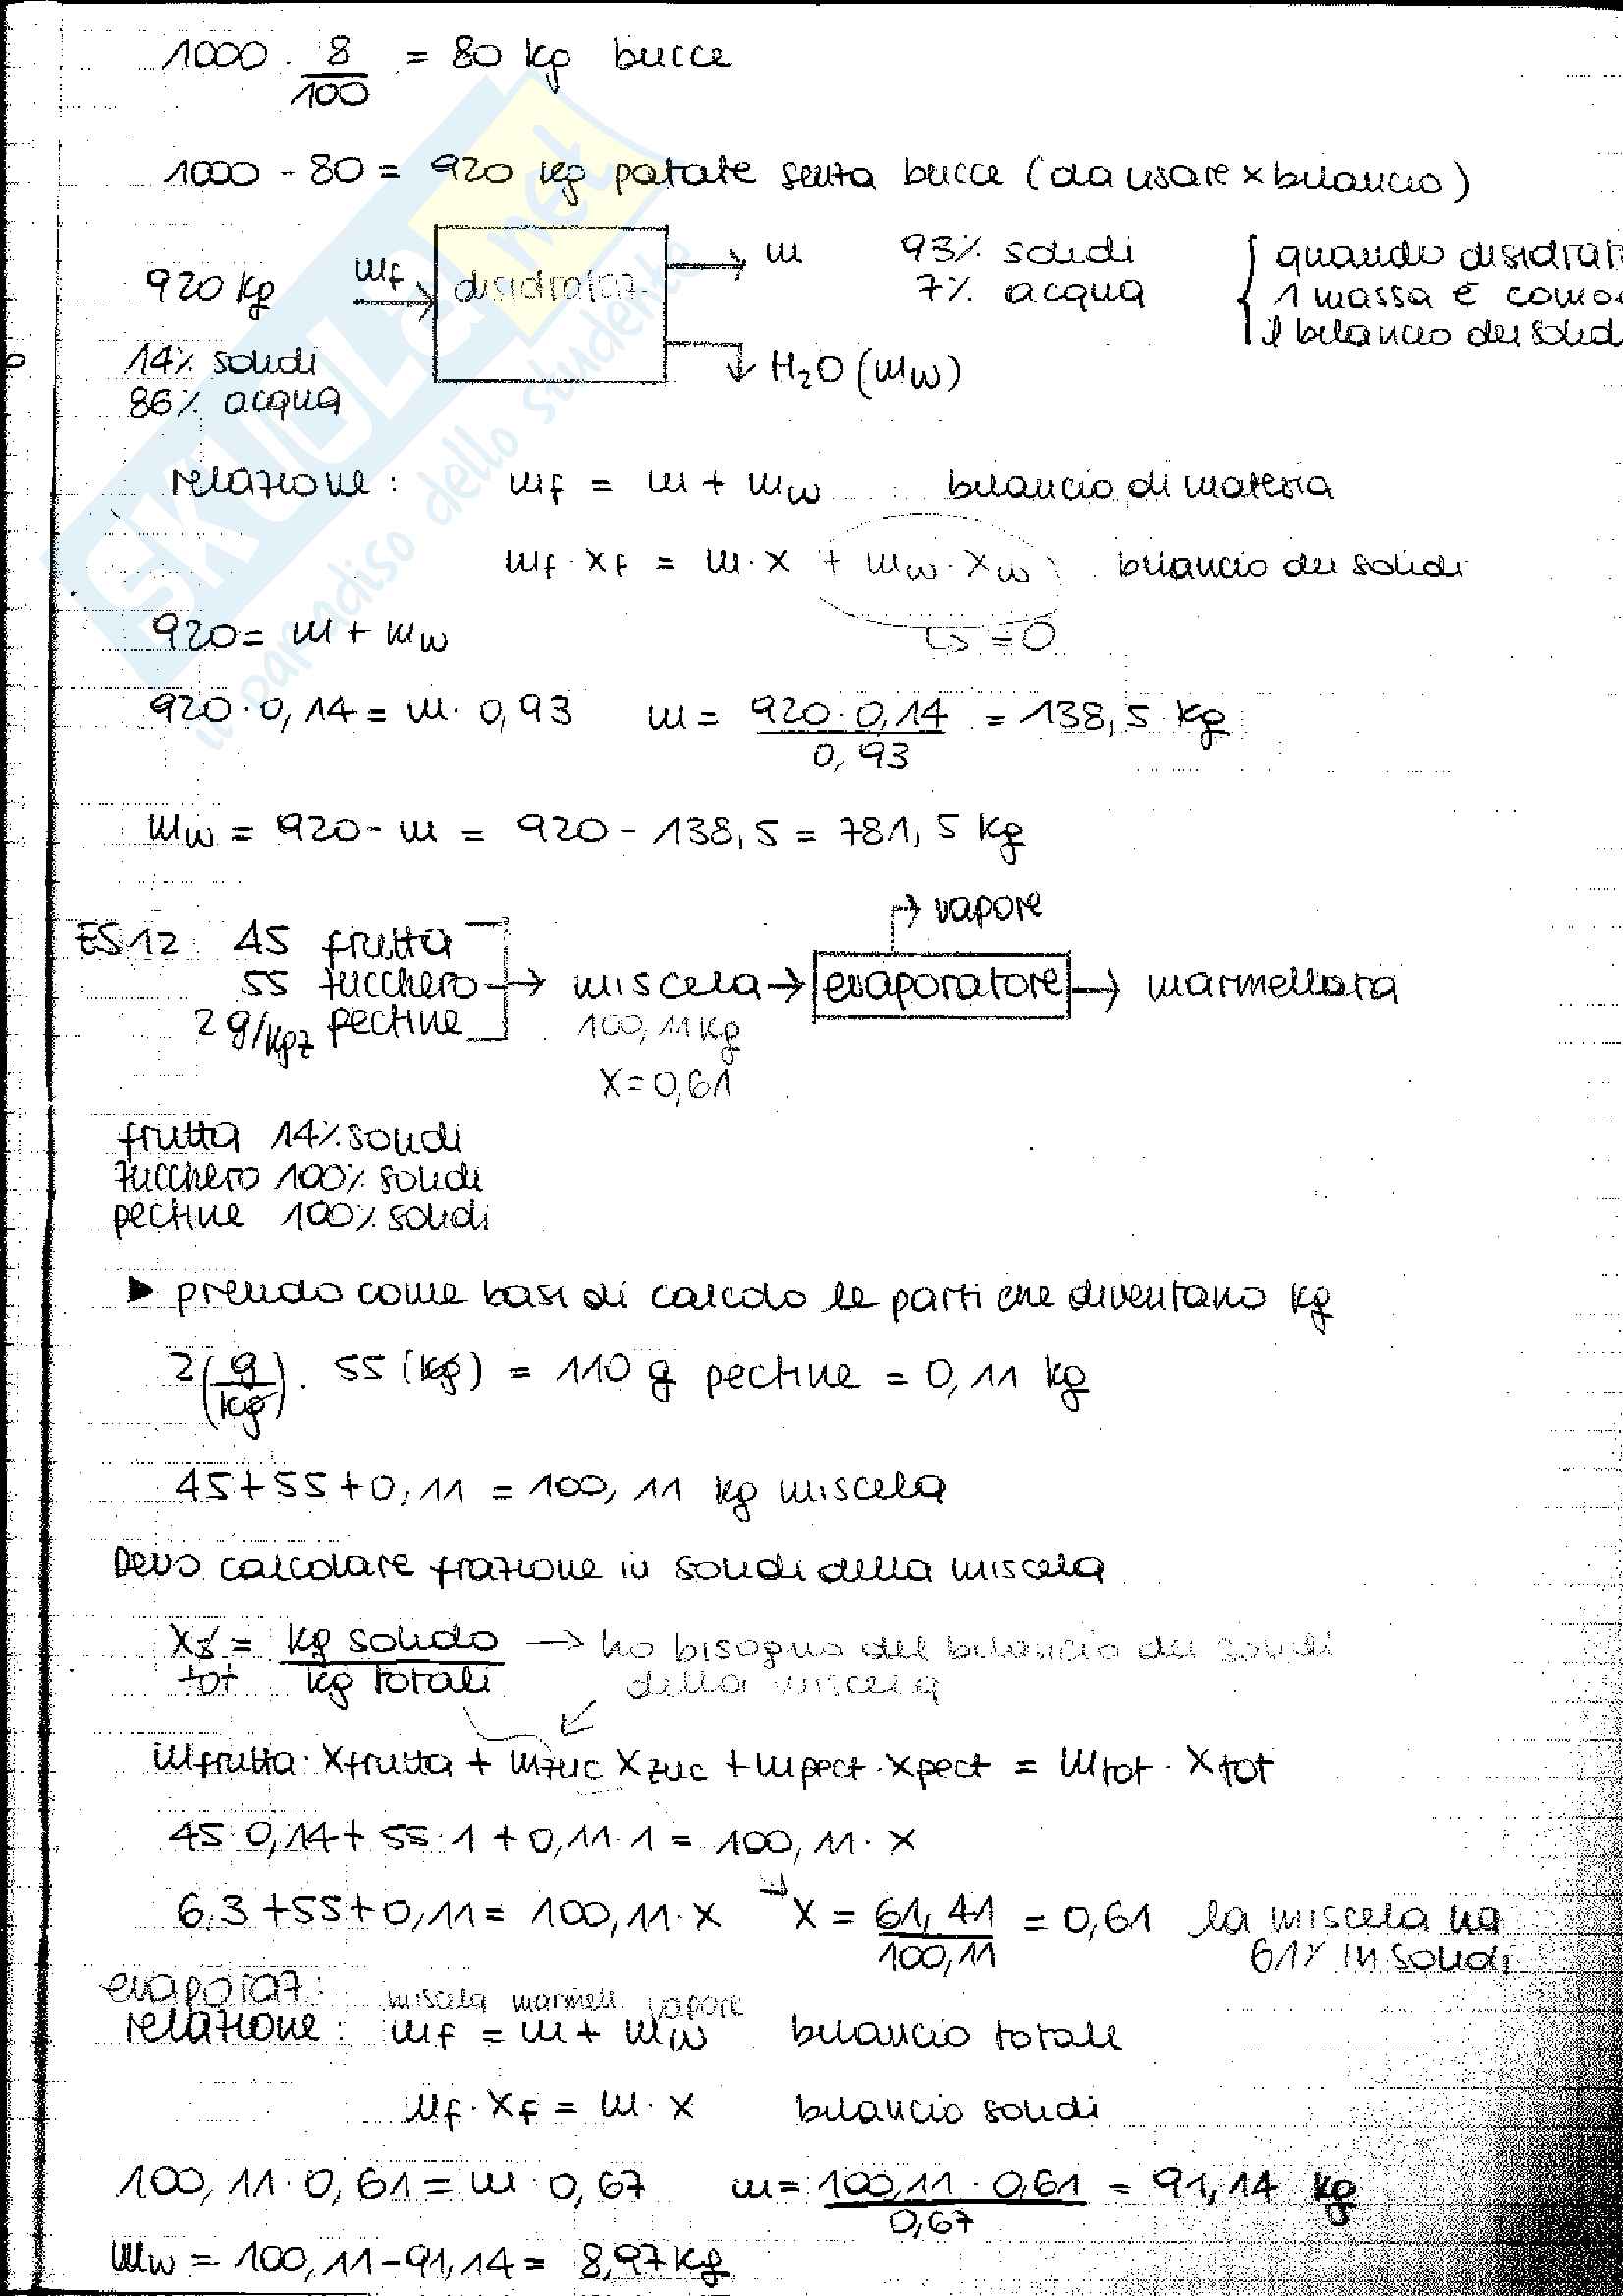 1000 · 8/100 = 80 kg bucce
1000 - 80 = 920 kg patate senza bucce (da usare x bilancio)
920 kg mf disidrataz. m 93% solidi
7% acqua
quando disidrat
1 massa è como
il bilancio dei solid
14% solidi
86% acqua
H2O (mw)
relazione: mf = m + mw bilancio di materia
mf · xf = m · x + mw · xw bilancio dei solidi
↳ = 0
920 = m + mw
920 · 0,14 = m · 0,93 m = 920 · 0,14 / 0,93 = 138,5 kg
mw = 920 - m = 920 - 138,5 = 781,5 kg
ES 12 45 frutta
55 zucchero → miscela → evaporatore → marmellata
vapore
2 g/kgz pectine
100,11 kg
x = 0,61
frutta 14% solidi
zucchero 100% solidi
pectine 100% solidi
▶ prendo come basi di calcolo le parti che diventano kg
2 (g/kg) · 55 (kg) = 110 g pectine = 0,11 kg
45 + 55 + 0,11 = 100,11 kg miscela
Devo calcolare frazione in solidi della miscela
xs tot = kg solido / kg totali → ho bisogno del bilancio dei solidi
della miscela
mfrutta · xfrutta + mzuc xzuc + mpect · xpect = mtot · xtot
45 · 0,14 + 55 · 1 + 0,11 · 1 = 100,11 · x
6,3 + 55 + 0,11 = 100,11 · x → x = 61,41 / 100,11 = 0,61 la miscela ha
61% in solidi
evaporaz:
miscela marmell. vapore
relazione: mf = m + mw bilancio totale
mf · xf = m · x bilancio solidi
100,11 · 0,61 = m · 0,67 m = 100,11 · 0,61 / 0,67 = 91,14 kg
mw = 100,11 - 91,14 = 8,97 kg
SKUOLA.net
il paradiso dello studente